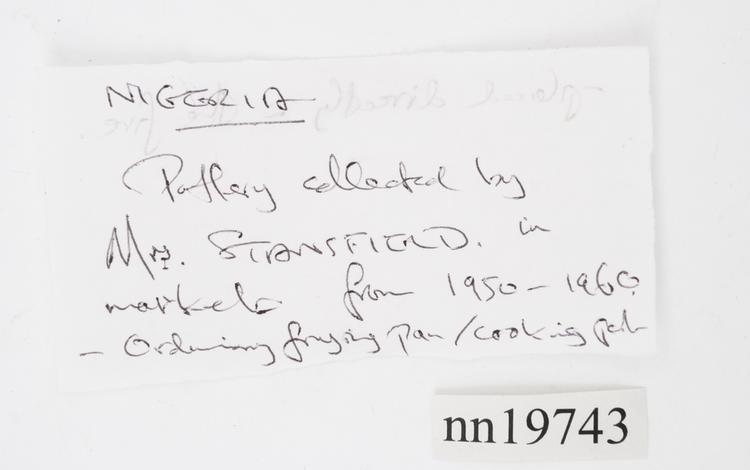 NIGERIA
Pottery collected by
Mrs. STANSFIELD. in
markets from 1950-1960
- Ordinary frying pan/cooking
nn19743